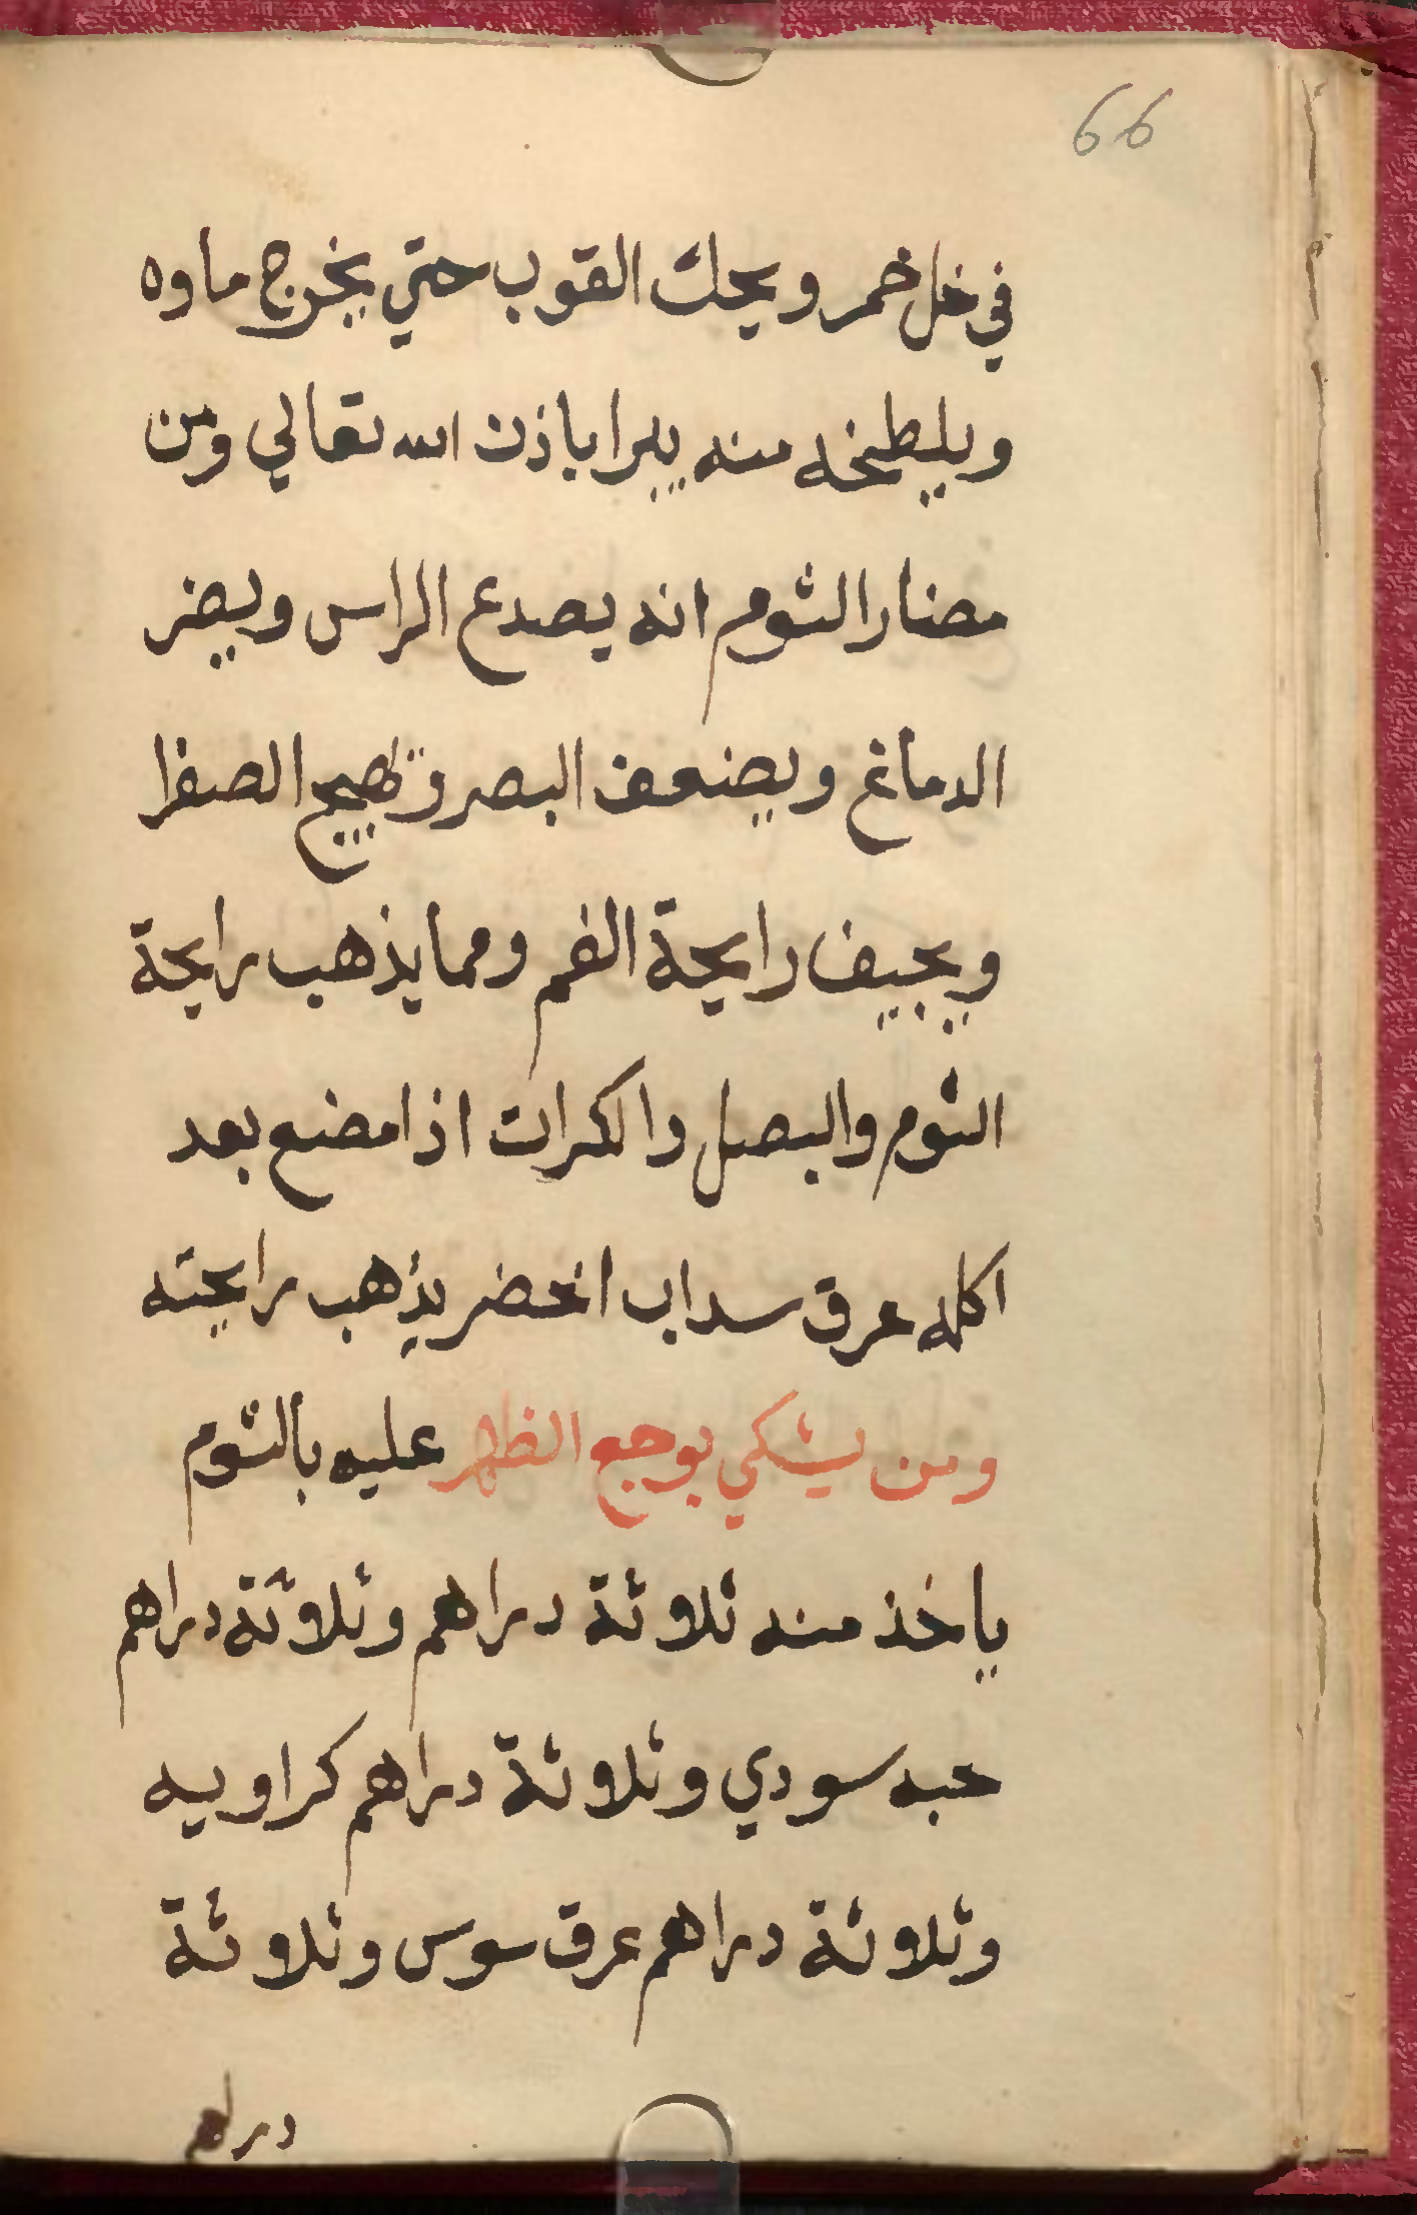 66
في خل خمر ويحك القوب حتي يخرج ماوه
ويلطخه منه يبرا باذن الله تعالي ومن
مضار الثوم انه يصدع الراس ويضر
الدماغ ويضعف البصر وتهيج الصفرا
ويجيف رايحة الفم ومما يذهب رايحة
الثوم والبصل والكرات اذا مضع بعد
اكله عرق سداب اخضر يذهب رايحته
ومن يشكي بوجع الظهر عليه بالثوم
ياخذ منه ثلاوثة دراهم وثلاوثة دراهم
حبه سودي وثلاوثة دراهم كراويه
وثلاوثة دراهم عرق سوس وثلاوثة
دراهم